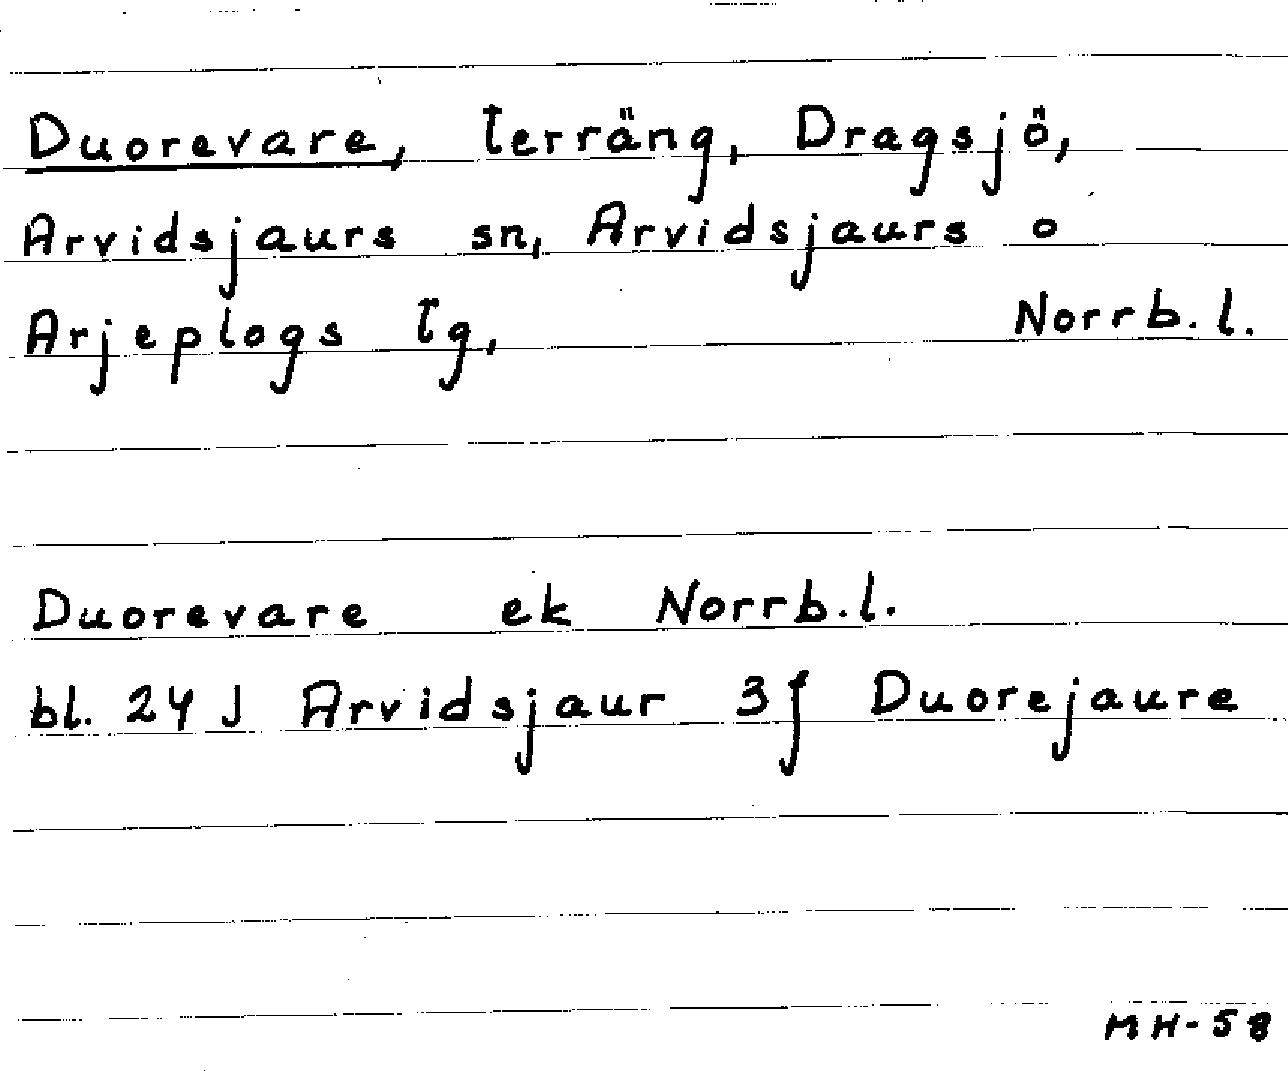 Duorevare, terräng, Dragsjö,
Arvidsjaurs sn, Arvidsjaurs o
Arjeplogs tg, Norrb. l.
Duorevare ek Norrb.l.
bl. 24 J Arvidsjaur 3f Duorejaure
MH-58